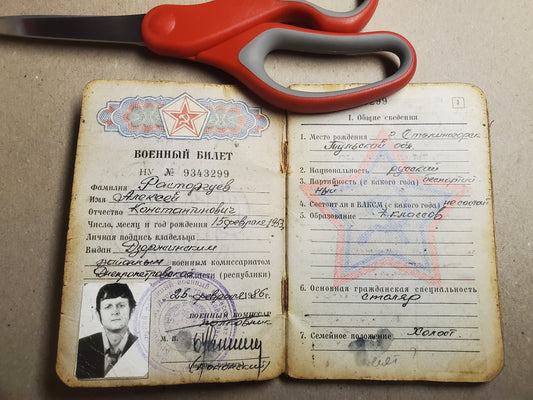 ВОЕННЫЙ БИЛЕТ
НУ № 9343299
Фамилия Расторгуев
Имя Алексей
Отчество Константинович
Число, месяц и год рождения 15 февраля 1953
Личная подпись владельца
Выдан Дзержинским
районным военным комиссариатом
Днепропетровской области (республики)
26 февраля 1986 г.
ВОЕННЫЙ КОМИССАР
полковник
М. П.
1
I. Общие сведения
1. Место рождения г. Сталиногорск
Тульской обл
2. Национальность русский
3. Партийность (с какого года) беспартий
ный
4. Состоит ли в ВЛКСМ (с какого года) не состоит
5. Образование 7 классов
6. Основная гражданская специальность
столяр
7. Семейное положение Холост.